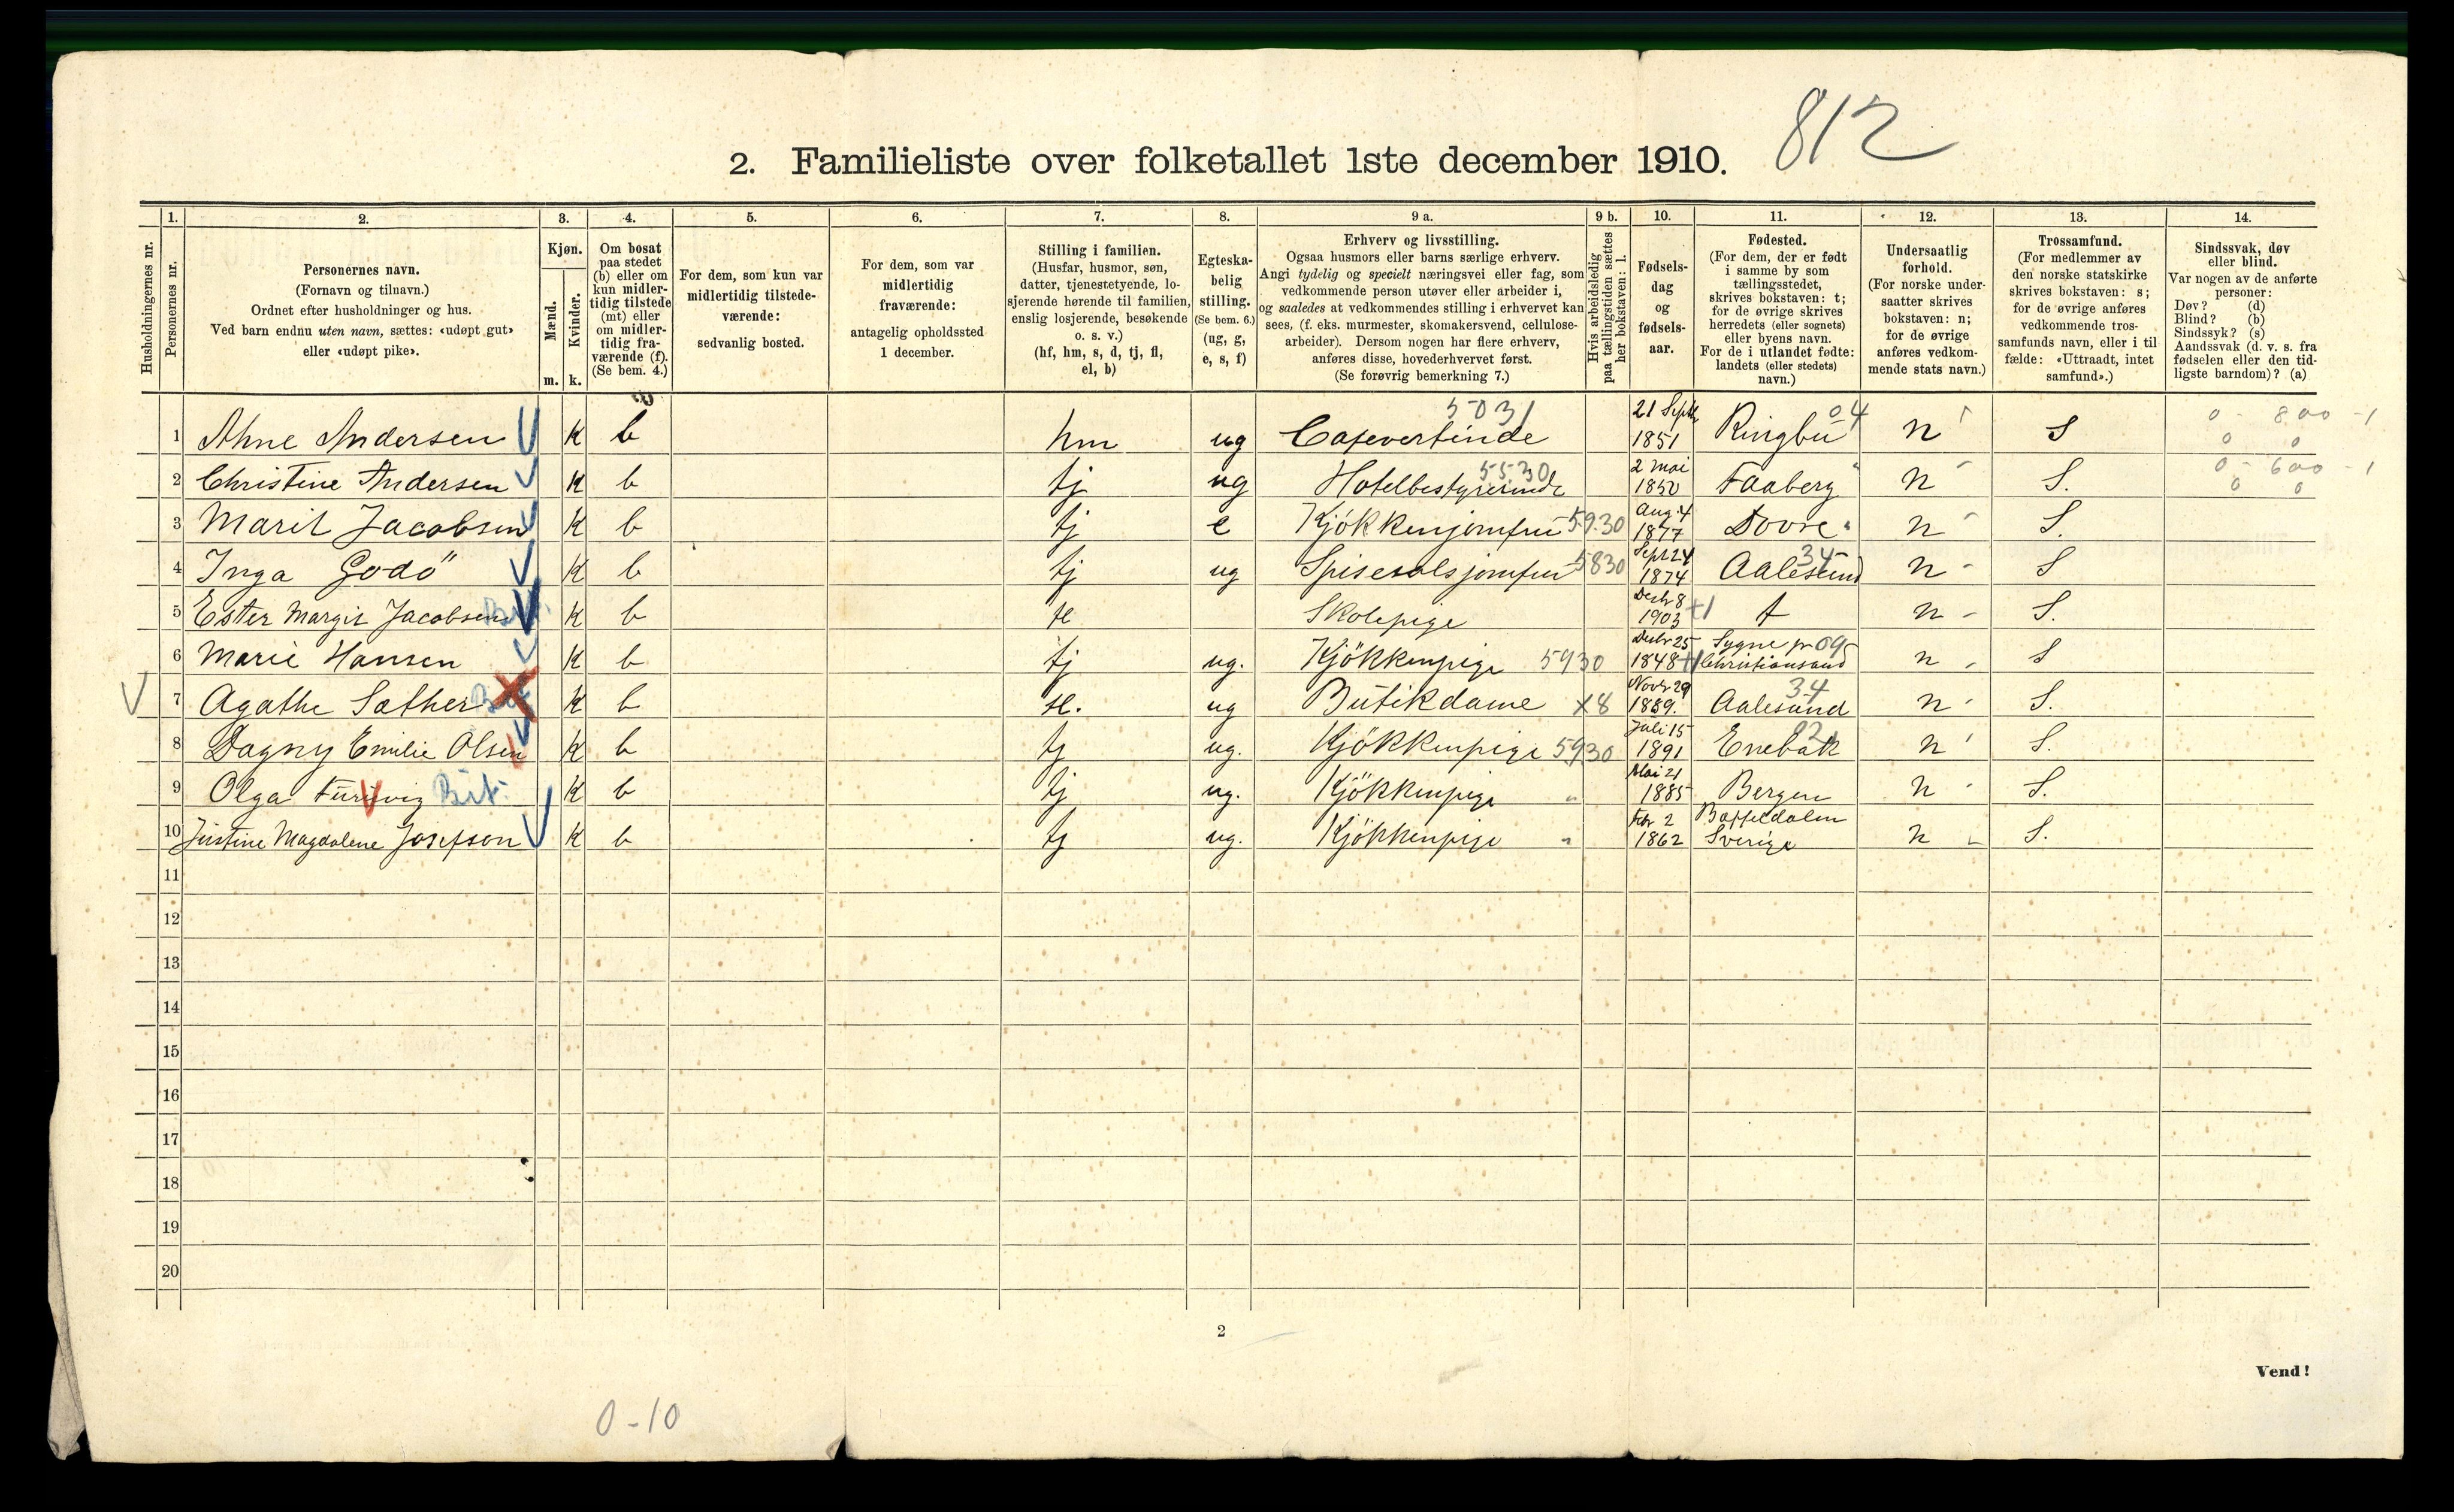 812
2. Familieliste over folketallet 1ste december 1910.
Husholdningernes nr.
1.
Personernes nr.
2.
Personernes navn.
(Fornavn og tilnavn.)
Ordnet efter husholdninger og hus.
Ved barn endnu uten navn, sættes: «udøpt gut»
eller «udøpt pike».
3.
Kjøn.
Mænd.
Kvinder.
m. k.
4.
Om bosat
paa stedet
(b) eller om
kun midler-
tidig tilstede
(mt) eller
om midler-
tidig fra-
værende (f).
(Se bem. 4.)
5.
For dem, som kun var
midlertidig tilstede-
værende:
sedvanlig bosted.
6.
For dem, som var
midlertidig
fraværende:
antagelig opholdssted
1 december.
7.
Stilling i familien.
(Husfar, husmor, søn,
datter, tjenestetyende, lo-
sjerende hørende til familien,
enslig losjerende, besøkende
o. s. v.)
(hf, hm, s, d, tj, fl,
el, b)
8.
Egteska-
belig
stilling.
(Se bem. 6.)
(ug, g,
e, s, f)
9 a.
Erhverv og livsstilling.
Ogsaa husmors eller barns særlige erhverv.
Angi tydelig og specielt næringsvei eller fag, som
vedkommende person utøver eller arbeider i,
og saaledes at vedkommendes stilling i erhvervet kan
sees, (f. eks. murmester, skomakersvend, cellulose-
arbeider). Dersom nogen har flere erhverv,
anføres disse, hovederhvervet først.
(Se forøvrig bemerkning 7.)
9 b.
Hvis arbeidsledig
paa tællingstiden sættes
her bokstaven: l.
10.
Fødsels-
dag
og
fødsels-
aar.
11.
Fødested.
(For dem, der er født
i samme by som
tællingsstedet,
skrives bokstaven: t;
for de øvrige skrives
herredets (eller sognets)
eller byens navn.
For de i utlandet fødte:
landets (eller stedets)
navn.)
12.
Undersaatlig
forhold.
(For norske under-
saatter skrives
bokstaven: n;
for de øvrige
anføres vedkom-
mende stats navn.)
13.
Trossamfund.
(For medlemmer av
den norske statskirke
skrives bokstaven: s;
for de øvrige anføres
vedkommende tros-
samfunds navn, eller i til-
fælde: «Uttraadt, intet
samfund».)
14.
Sindssvak, døv
eller blind.
Var nogen av de anførte
personer:
Døv? (d)
Blind? (b)
Sindssyk? (s)
Aandssvak (d. v. s. fra
fødselen eller den tid-
ligste barndom)? (a)
5031 21 Septb 04 0 - 800 - 1
1 Ahne Andersen K b hm ug Cafevertinde 1851 Ringbu n S 0 0
5530 2 mai 0 - 600 - 1
2 Christine Andersen K b tj ug Hotelbestyrerinde 1850 Faaberg n S. 0 0
Aug. 4
3 Marit Jacobsen K b tj e Kjøkkenjomfru 5930 1877 Dovre n S.
Sept 24 34
4 Inga Godö K b tj ug Spisesalsjomfru 5830 1874 Aalesund n S
Desb 8
5 Ester Margit Jacobsen K b Skolepige 1903 t n S.
Desbr 25 Sygne pr 09
6 Marie Hansen K b tj ug. Kjökkenpige 5930 1848 Christiansand n S
Novb 29 34
7 Agathe Sæther K b ug Butikdame x8 1889. Aalesund n S.
Juli 15 02
8 Dagny Emilie Olsen K b tj ug. Kjökkenpige 5930 1891 Enebak n S.
Mai 21
9 Olga Furuvig Bit. K b tj ug. Kjökkenpige " 1885 Bergen n S.
Febr 2
10 Justine Magdalene Josefson K b tj ug. Kjökkenpige " 1862 Sverige n S.
11
12
13
14
15
16
17
18
19
20
2
Vend!
0-10